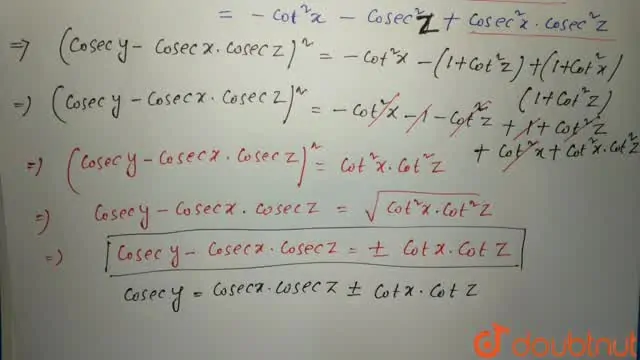 = - Cot²x - Cosec²Z + Cosec²x · Cosec²Z
⇒ (Cosec y - Cosec x · Cosec Z)² = - Cot²x - (1 + Cot²Z) + (1 + Cot²x)
(1 + Cot²Z)
⇒ (Cosec y - Cosec x · Cosec Z)² = - Cot²x - 1 - Cot²Z + 1 + Cot²Z
+ Cot²x + Cot²x · Cot²Z
⇒ (Cosec y - Cosec x · Cosec Z)² = Cot²x · Cot²Z
⇒ Cosec y - Cosec x · Cosec Z = √Cot²x · Cot²Z
⇒ Cosec y - Cosec x · Cosec Z = ± Cot x · Cot Z
Cosec y = Cosec x · Cosec Z ± Cot x · Cot Z
doubtnut